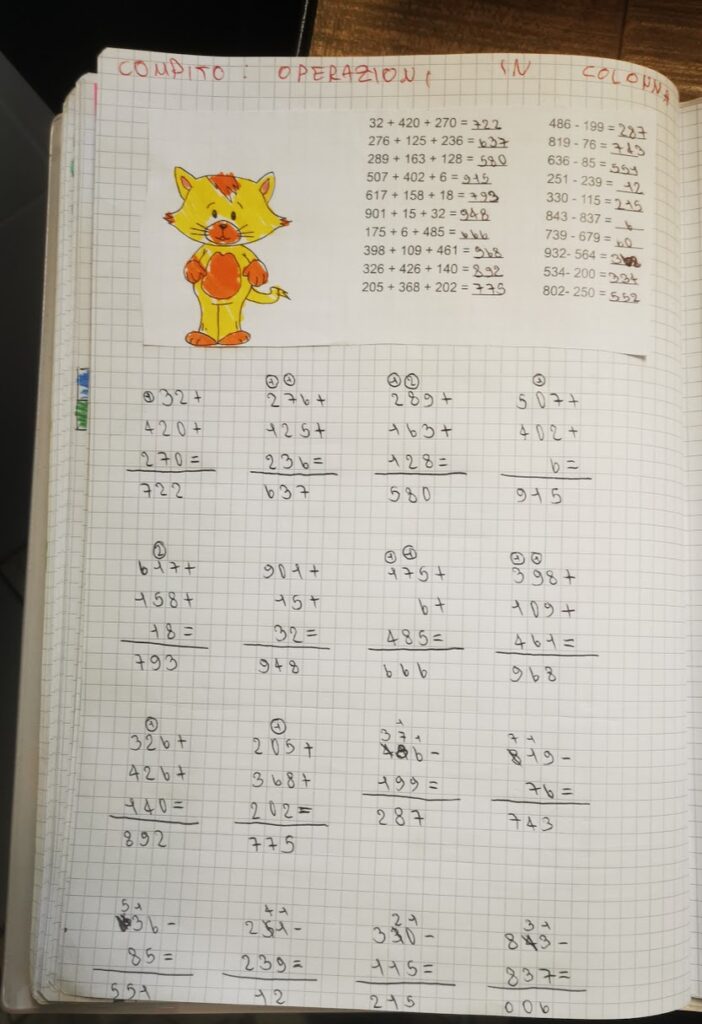 COMPITO: OPERAZIONI IN COLONNA
32 + 420 + 270 = 722
276 + 125 + 236 = 637
289 + 163 + 128 = 580
507 + 402 + 6 = 915
617 + 158 + 18 = 793
901 + 15 + 32 = 948
175 + 6 + 485 = 666
398 + 109 + 461 = 968
326 + 426 + 140 = 892
205 + 368 + 202 = 775
486 - 199 = 287
819 - 76 = 743
636 - 85 = 551
251 - 239 = 12
330 - 115 = 215
843 - 837 = 6
739 - 679 = 60
932- 564 = 368
534- 200 = 334
802- 250 = 552
1 1 1 2 1
1 32+ 276+ 289+ 507+
420+ 125+ 163+ 402+
270= 236= 128= 6=
722 637 580 915
2 1 1 1 1
617+ 901+ 175+ 398+
158+ 15+ 6+ 109+
18= 32= 485= 461=
793 948 666 968
1 1 3 7 1 7 1
326+ 205+ 486- 819-
426+ 368+ 199= 76=
140= 202= 287 743
892 775
5 1 4 1 2 1 3 1
636- 251- 330- 843-
85= 239= 115= 837=
551 12 215 006